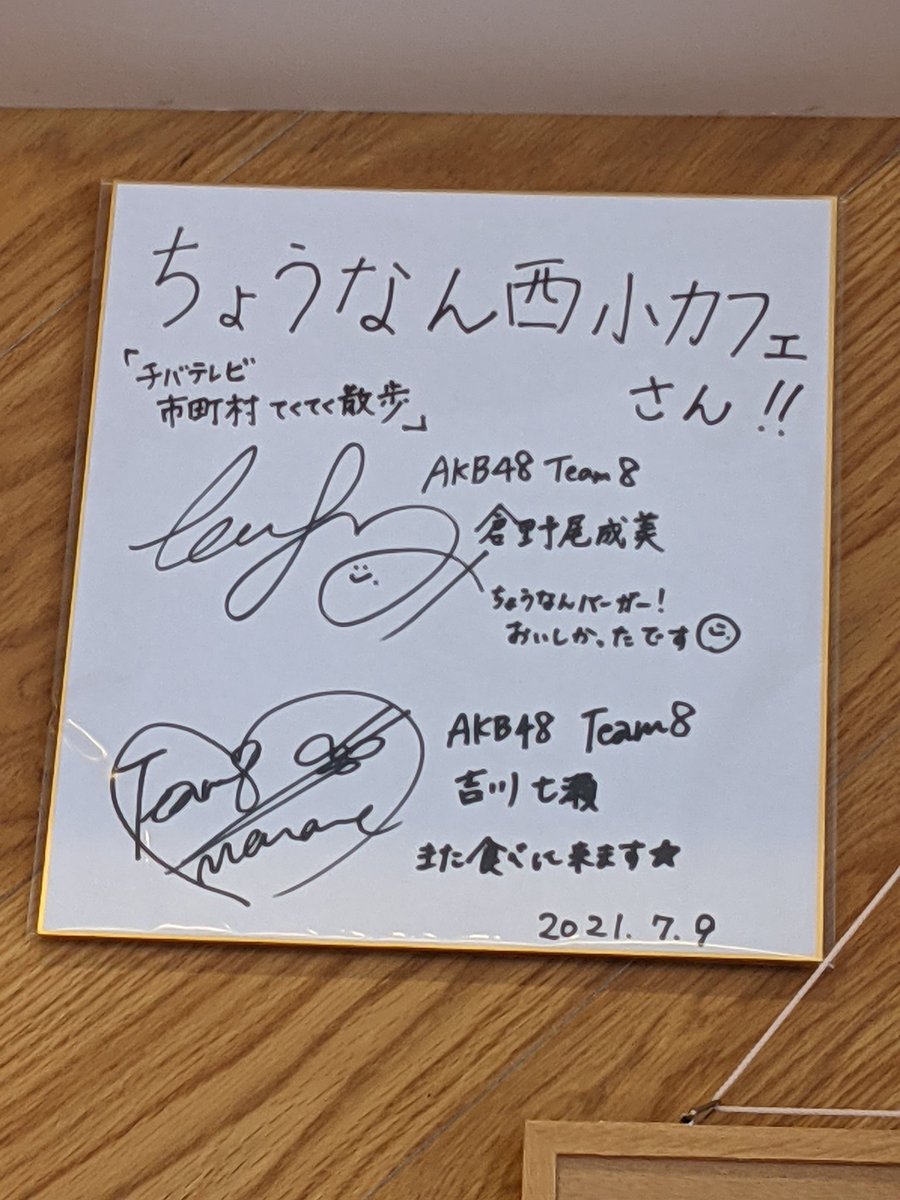 ちょうなん西小カフェ
さん!!
「チバテレビ
市町村 てくてく散歩」
AKB48 Team 8
倉野尾成美
ちょうなんバーガー!
おいしかったです
Team8
nanase
AKB48 Team8
吉川七瀬
また食べに来ます★
2021.7.9